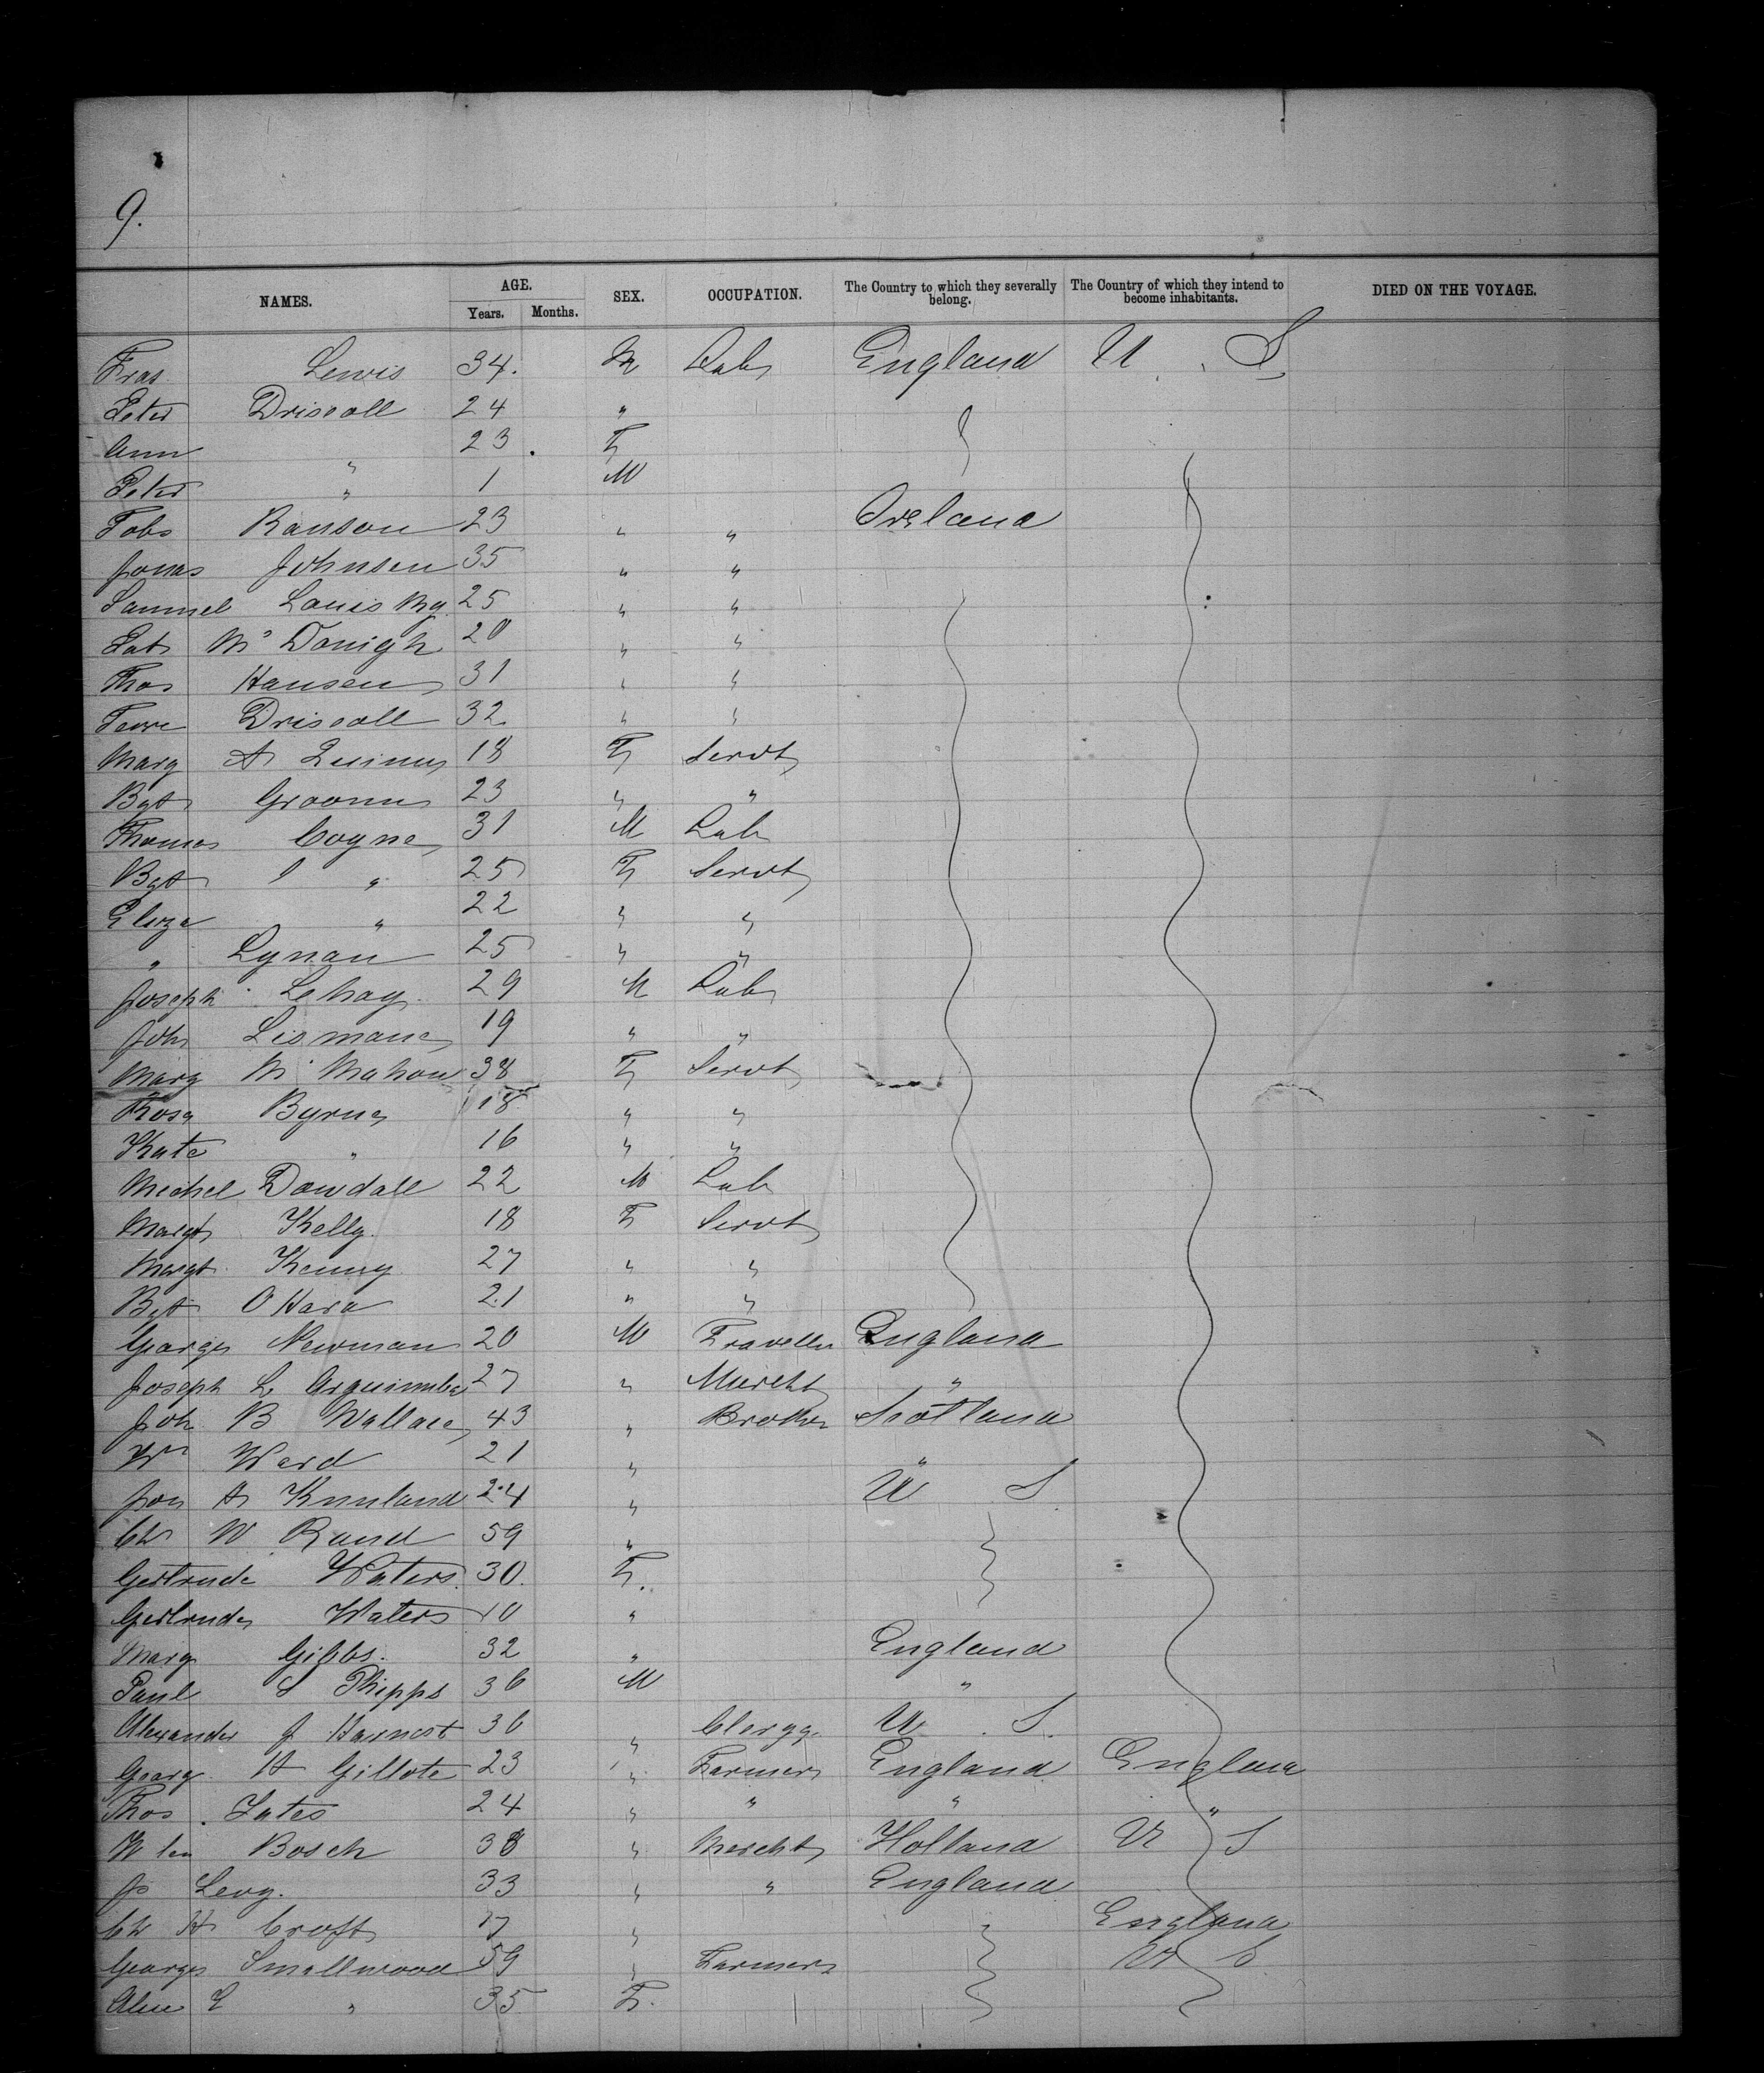 9.
NAMES. AGE. Years. Months. SEX. OCCUPATION. The Country to which they severally belong. The Country of which they intend to become inhabitants. DIED ON THE VOYAGE.
Fras Lewis 34. M Lab England U . S
Peter Driscoll 24 "
Ann " 23 . F
Peter " 1 M
Tobs Ranson 23 " " Ireland
Jonas Johnsen 35 " "
Samuel Louis 25 " "
Pat Mc Donigh 20 " "
Thos Hansen 31 " "
Driscoll 32 " "
Mary A Quinn 18 F Servt
Bgt Groom 23 " "
Thomas Coyne 31 M Lab
Bgt " 25 F Servt
Eliza " 22 " "
" Lynan 25 " "
Joseph Lehay 29 M Lab
Joh Lismane 19 " "
Mary Mc Mahon 38 F Servt
Rose Byrne 18 " "
Kate " 16 " "
Michel Dowdall 22 M Lab
Margt Kelly 18 F Servt
Margt Kenny 27 " "
Bgt O Hara 21 " "
George Newman 20 M Traveller England
Joseph L 27 " Mercht "
Joh B Wallace 43 " Broker Scotland
Wm Ward 21 " "
Jon A 24 " U S
Ch W Rand 59 "
Gertrude Waters 30. F.
Gertrude Waters 10 "
Mary Gibbs. 32 " England
Paul S Phipps 36 M "
Alexander J Harnest 36 " Clergy U . S.
Georg H Gillote 23 " Farmer England England
Thos . Yates 24 " " " "
Bosch 38 " Mercht Holland U S
Js Levy. 33 " " England
Ch H Croft 17 " England
George Smallwood 59 " Farmer U S
E " 35 F.